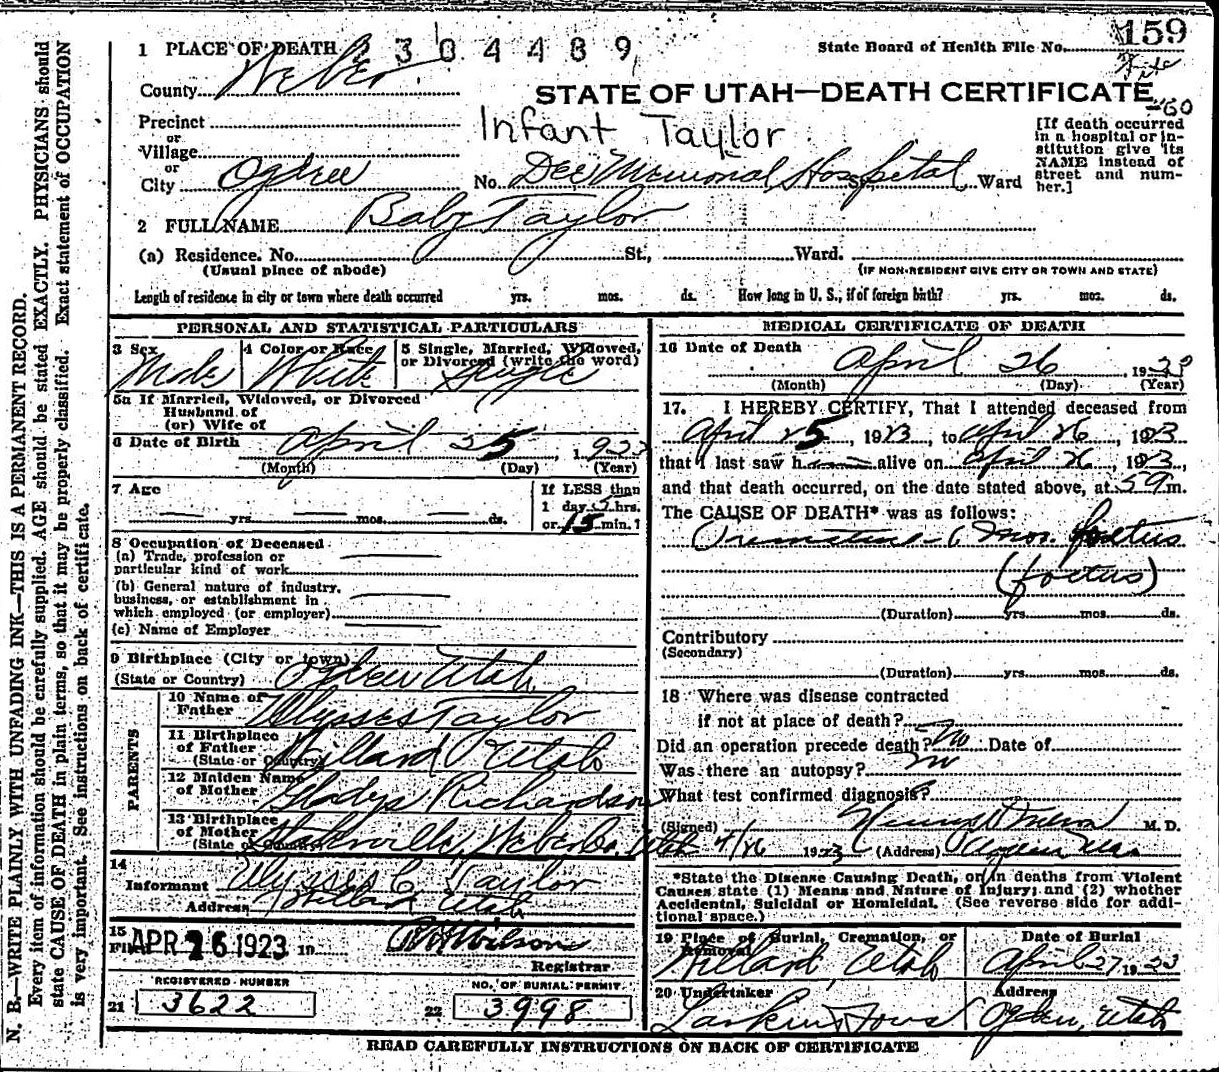 N. B.—WRITE PLAINLY WITH UNFADING INK—THIS IS A PERMANENT RECORD.
Every item of information should be carefully supplied. AGE should be stated EXACTLY. PHYSICIANS should
state CAUSE OF DEATH in plain terms, so that it may be properly classified. Exact statement of OCCUPATION
is very important. See instructions on back of certificate.
1 PLACE OF DEATH 2 304489
State Board of Health File No. 159
County Weber
STATE OF UTAH—DEATH CERTIFICATE
Precinct
Infant Taylor
or
Village
or
City Ogden
No. Dee Memorial Hospital St. Ward
[If death occurred
in a hospital or in-
stitution give its
NAME instead of
street and num-
ber.]
2 FULL NAME Baby Taylor
(a) Residence. No. St., Ward.
(Usual place of abode)
(IF NON-RESIDENT GIVE CITY OR TOWN AND STATE)
Length of residence in city or town where death occurred yrs. mos. ds. How long in U. S., if of foreign birth? yrs. mos. ds.
PERSONAL AND STATISTICAL PARTICULARS
3 Sex
Male
4 Color or Race
White
5 Single, Married, Widowed,
or Divorced (write the word)
Single
5a If Married, Widowed, or Divorced
Husband of
(or) Wife of
6 Date of Birth April 25 1923
(Month) (Day) (Year)
7 Age
yrs. mos. ds.
If LESS than
1 day hrs.
or 15 min.?
8 Occupation of Deceased
(a) Trade, profession or
particular kind of work
(b) General nature of industry,
business, or establishment in
which employed (or employer)
(c) Name of Employer
9 Birthplace (City or town)
(State or Country) Ogden Utah
PARENTS
10 Name of
Father Ulysses Taylor
11 Birthplace
of Father
(State or Country) Willard Utah
12 Maiden Name
of Mother Gladys Richardson
13 Birthplace
of Mother
(State or Country) Weber Co, Utah
14
Informant Ulysses C. Taylor
Address Willard Utah
15
Filed APR 26 1923 19 Wilson
Registrar
REGISTERED NUMBER
21 3622
NO. OF BURIAL PERMIT
22 3998
MEDICAL CERTIFICATE OF DEATH
16 Date of Death April 26 1923
(Month) (Day) (Year)
17. I HEREBY CERTIFY, That I attended deceased from
April 25, 1923, to April 26, 1923
that I last saw h alive on April 26, 1923,
and that death occurred, on the date stated above, at m.
The CAUSE OF DEATH* was as follows:
6 mos. foetus
(foetus)
(Duration) yrs. mos. ds.
Contributory
(Secondary)
(Duration) yrs. mos. ds.
18 Where was disease contracted
if not at place of death?
Did an operation precede death? No Date of
Was there an autopsy? no
What test confirmed diagnosis?
(Signed) M. D.
4/26 1923 (Address) Ogden Utah
*State the Disease Causing Death, or in deaths from Violent
Causes state (1) Means and Nature of Injury; and (2) whether
Accidental, Suicidal or Homicidal. (See reverse side for addi-
tional space.)
19 Place of Burial, Cremation, or
Removal
Willard, Utah
Date of Burial
April 27 1923
20 Undertaker
Larkin & Sons
Address
Ogden, Utah
READ CAREFULLY INSTRUCTIONS ON BACK OF CERTIFICATE